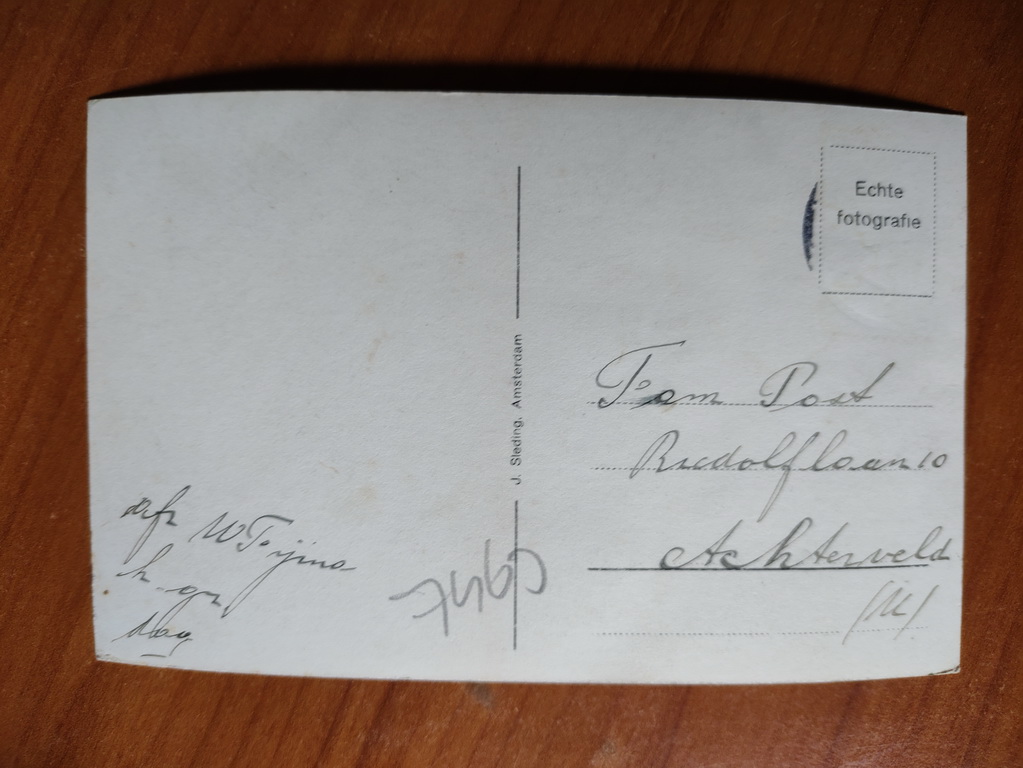 Echte
fotografie
J. Sleding, Amsterdam
Tom Post
Rudolflaan 10
Achterveld
afz W
h. gr.
dag